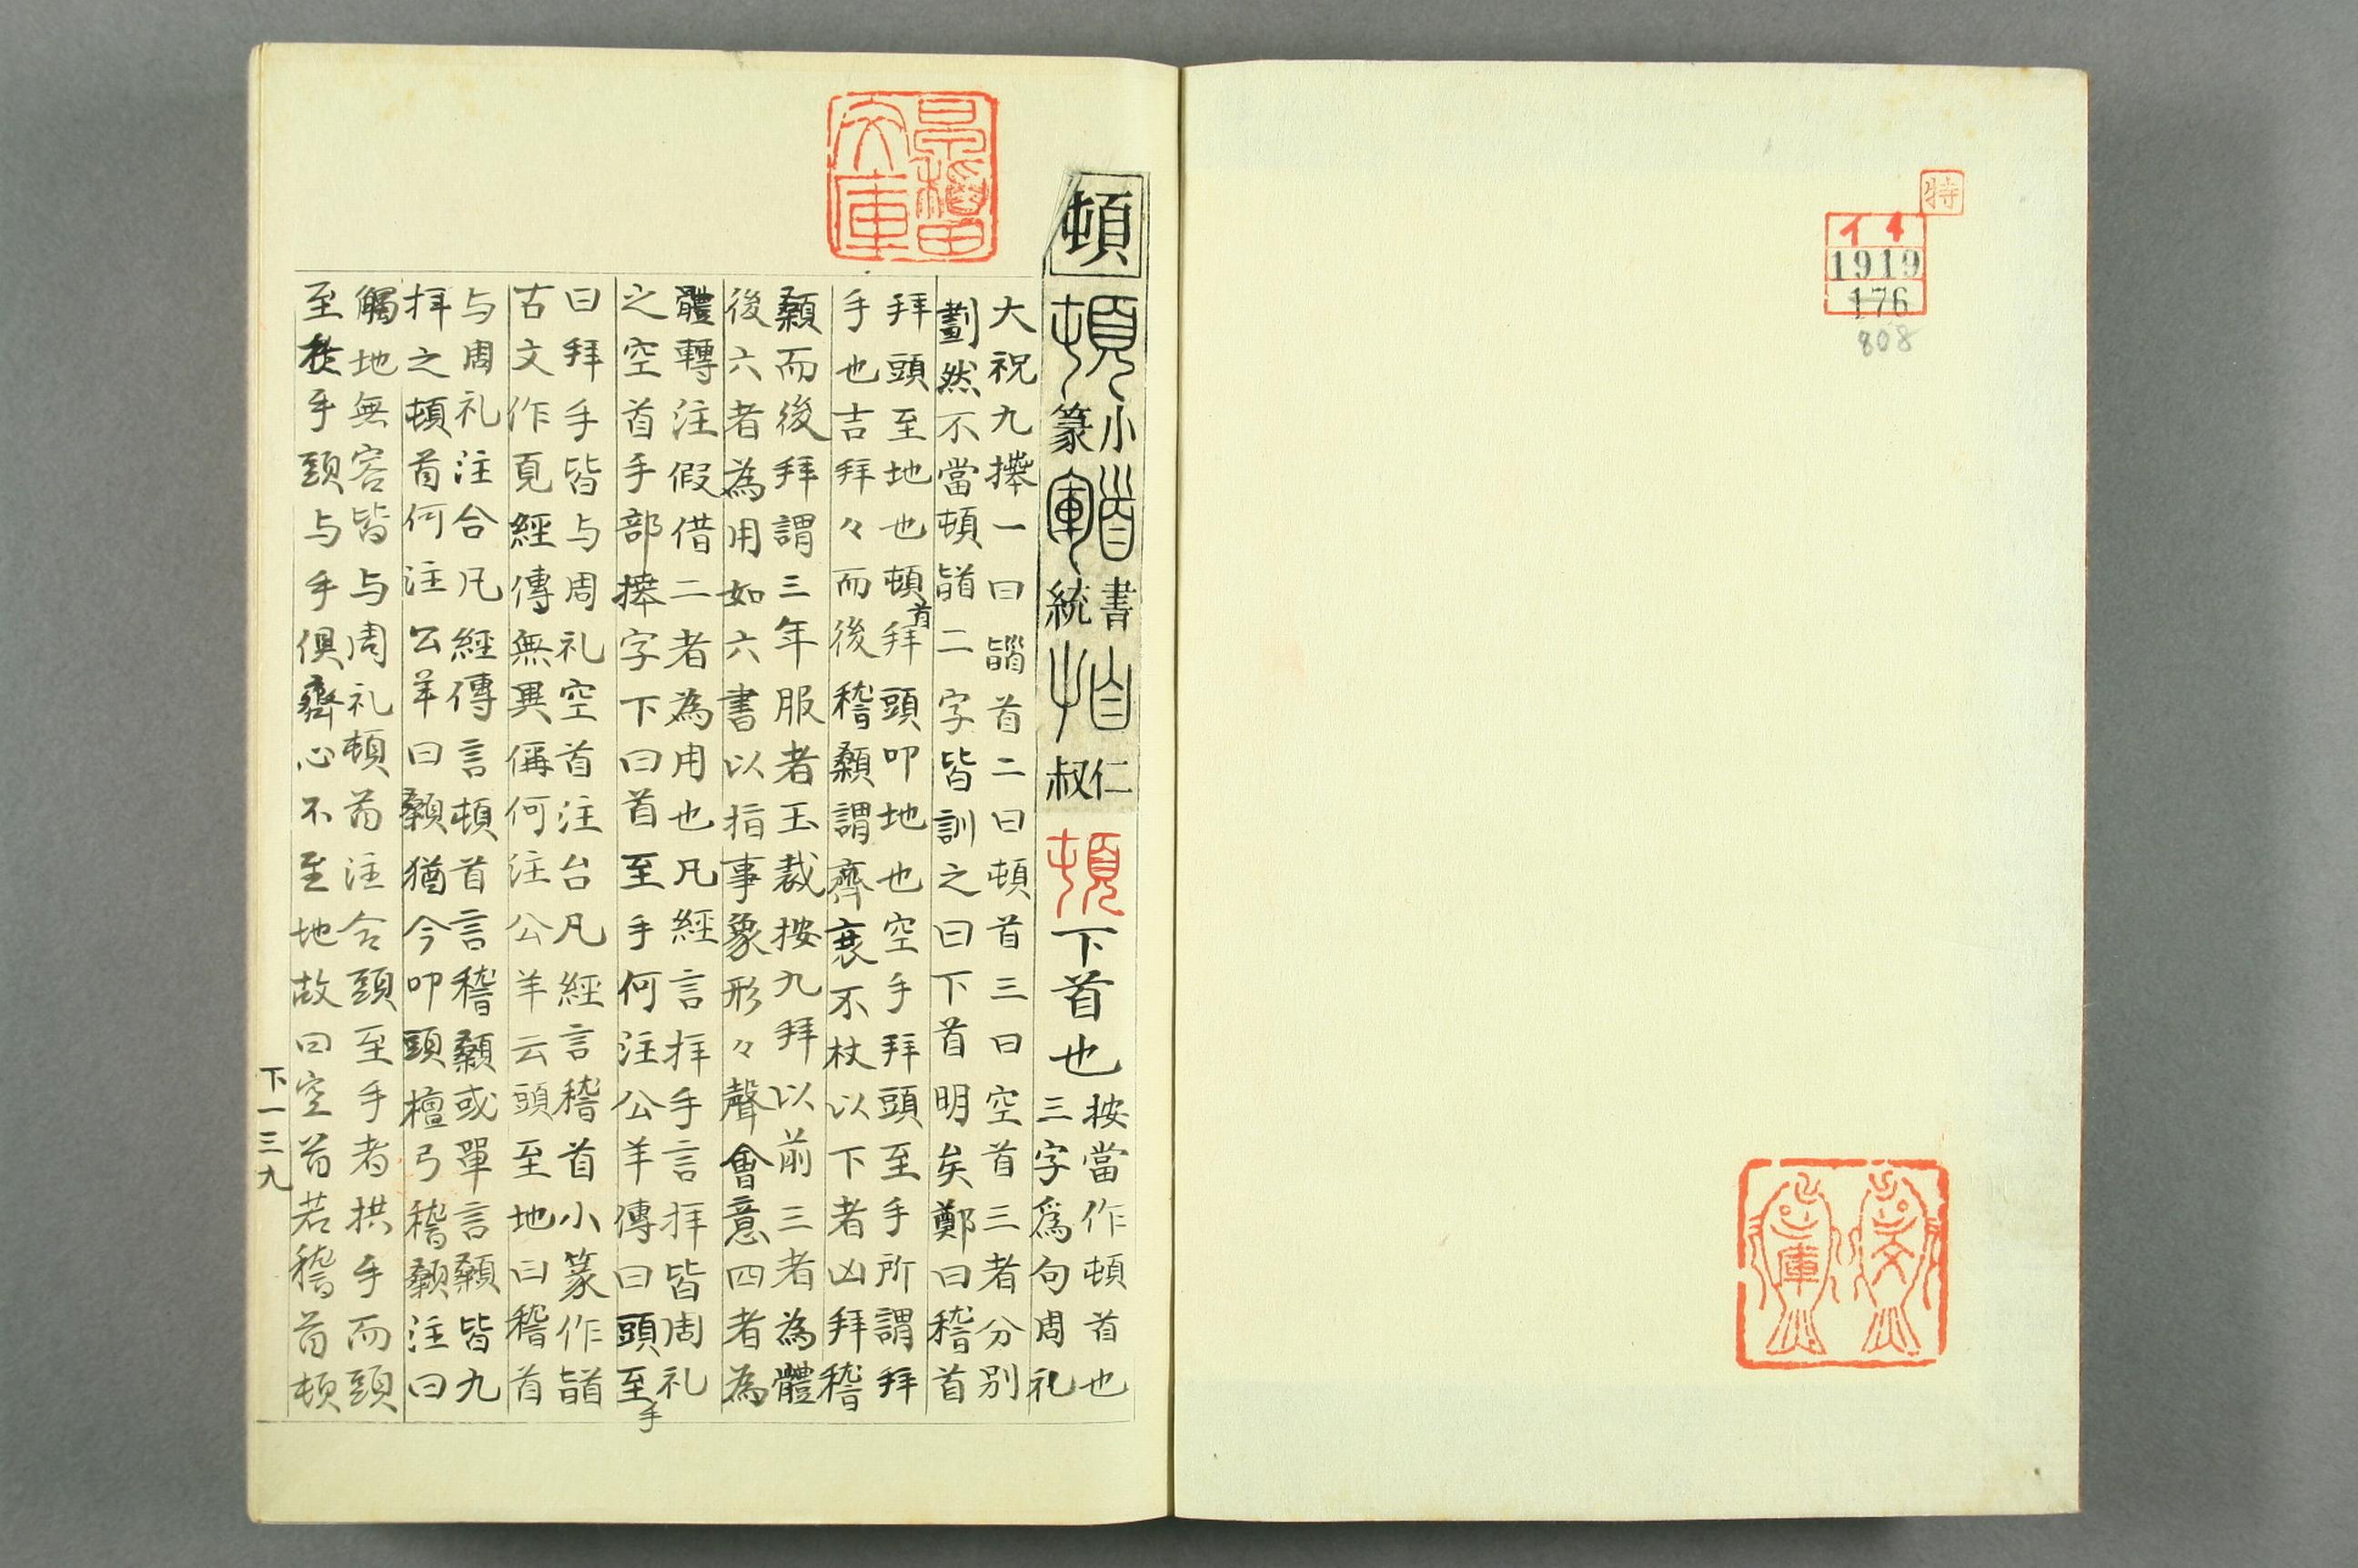 特
イ4
1919
176
808
文庫
早稻田文庫
頓
頓小篆書統仁叔
頓下首也
按當作頓首也
三字爲句周礼
大祝九㩿一曰䭫首二曰頓首三曰空首三者分別
劃然不當頓䭫二字皆訓之曰下首明矣鄭曰稽首
拜頭至地也頓首拜頭叩地也空手拜頭至手所謂拜
手也吉拜々而後稽顙謂齊衰不杖以下者凶拜稽
顙而後拜謂三年服者玉裁按九拜以前三者為體
後六者為用如六書以指事象形々聲會意四者為
體轉注假借二者為用也凡經言拝手言拝皆周礼
之空首手部㩿字下曰首至手何注公羊傳曰頭至手
曰拜手皆与周礼空首注台凡經言稽首小篆作䭫
古文作𩒨經傳無異稱何注公羊云頭至地曰稽首
与周礼注合凡經傳言頓首言稽顙或單言顙皆九
拝之頓首何注公羊曰顙猶今叩頭檀弓稽顙注曰
觸地無容皆与周礼頓首注合頭至手者拱手而頭
至於手頭与手俱齊心不至地故曰空首若稽首頓
下一三九